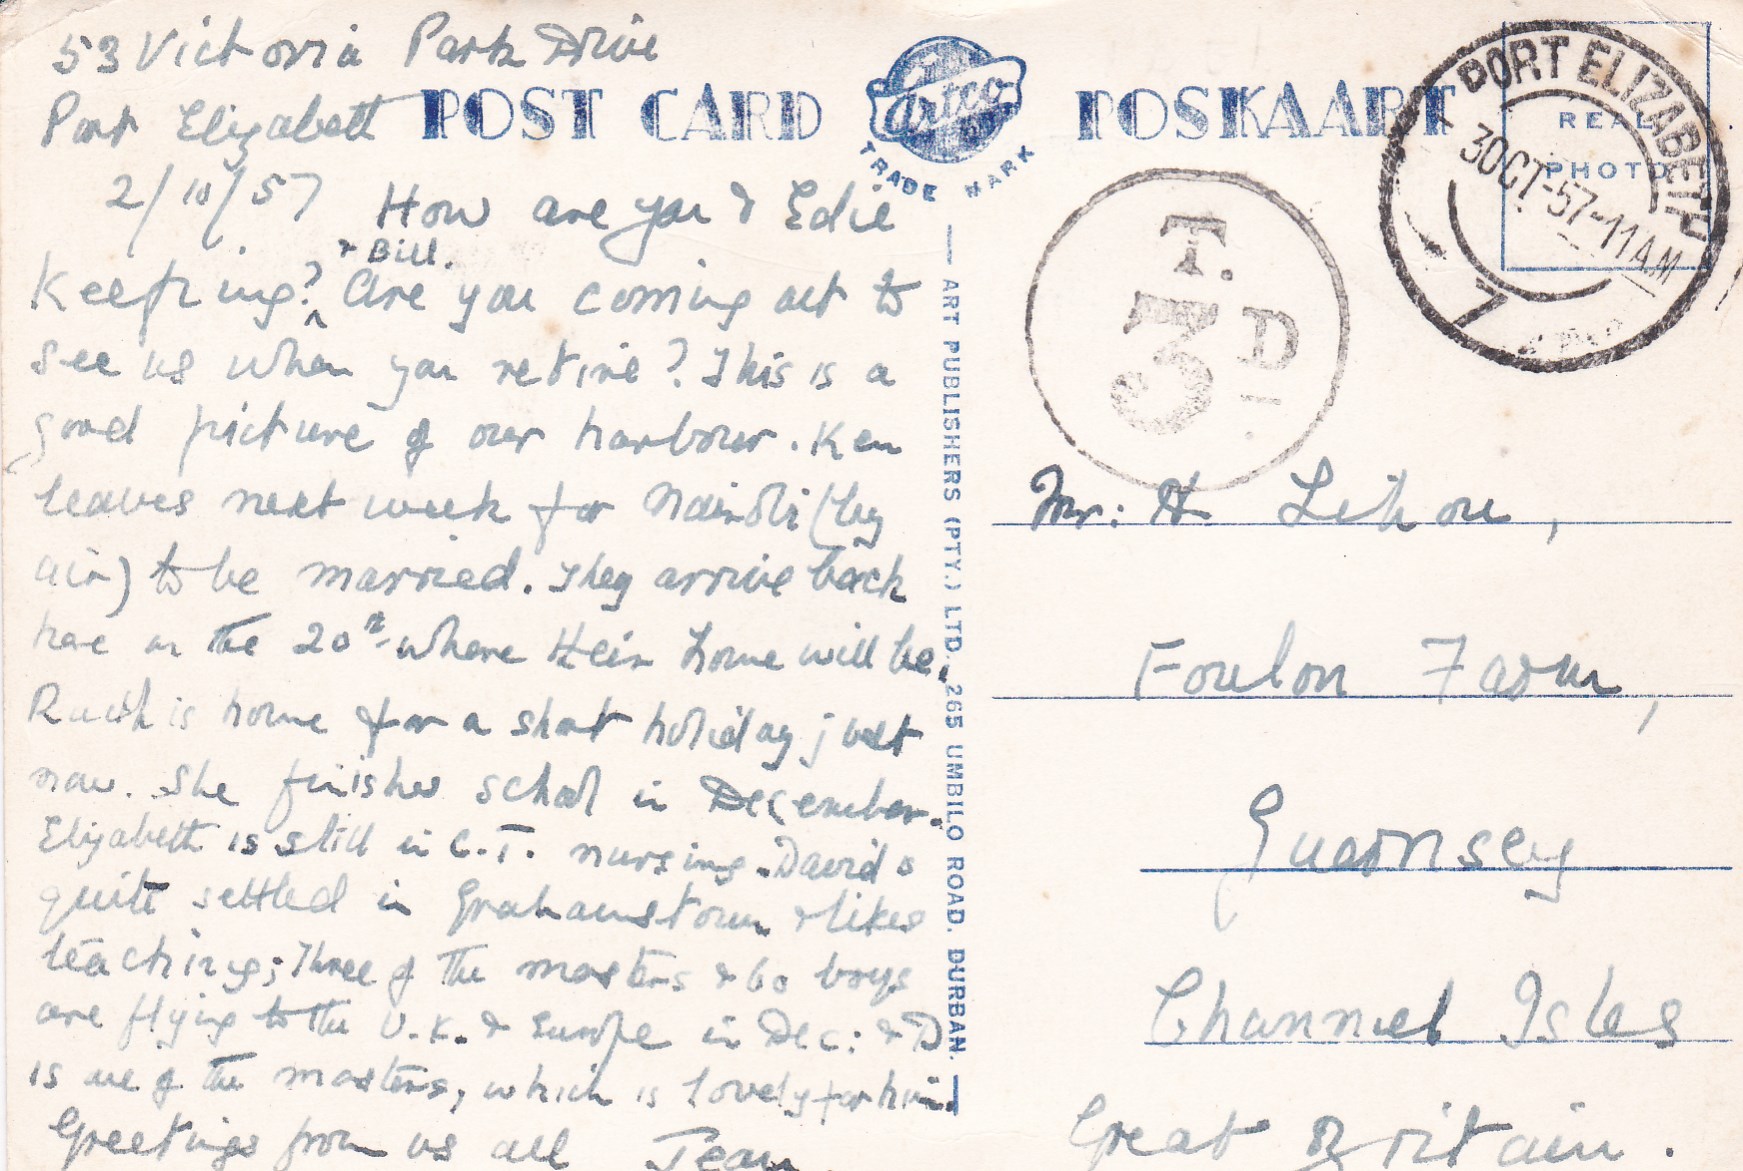 53 Victoria Park Drive
Port Elizabeth
2/10/57 How are you & Edie
& Bill.
Keeping? Are you coming out to
see us when you retire? This is a
good picture of our harbour. Ken
leaves next week for Nairobi (by
air) to be married. They arrive back
here on the 20th where their home will be.
Ruth is home for a short holiday just
now. She finishes school in December.
Elizabeth is still in C.T. nursing. David is
quite settled in Grahamstown & likes
teaching; Three of the masters & 60 boys
are flying to the U.K. & Europe in Dec: & D
is one of the masters, which is lovely for him.
Greetings from us all Jean.
POST CARD
Artco
TRADE MARK
POSKAART
REAL
PHOTO
PORT ELIZABETH
3 OCT-57-11 AM
7
T.
3 D
ART PUBLISHERS (PTY.) LTD. 265 UMBILO ROAD. DURBAN.
Mr: H Lihou,
Foulon Farm,
Guernsey
Channel Isles
Great Britain.